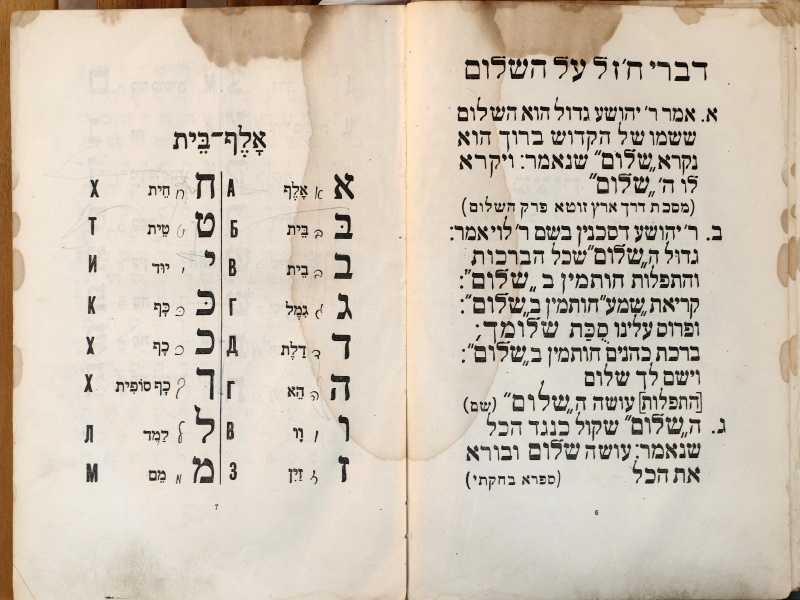 דברי חז״ל על השלום
א. אמר ר׳ יהושע גדול הוא השלום
ששמו של הקדוש ברוך הוא
נקרא „שלום” שנאמר: ויקרא
לו ה׳ „שלום”
(מסכת דרך ארץ זוטא פרק השלום)
ב. ר׳ יהושע דסכנין בשם ר׳ לוי אמר:
גדול ה„שלום” שכל הברכות
והתפלות חותמין ב „שלום”:
קריאת „שמע” חותמין ב„שלום”:
ופרוס עלינו סֻכּת שלומך;
ברכת כהנים חותמין ב„שלום”:
וישם לך שלום
[התפלות] עושה ה„שלום” (שם)
ג. ה„שלום” שקול כנגד הכל
שנאמר: עושה שלום ובורא
את הכל (ספרא בחקתי)
6
אָלֶף־בֵּית
א א אָלֶף А
בּ ב בֵּית Б
ב ב בֵית В
ג ג גִמֶל Г
ד ד דָלֶת Д
ה ה הֵא Г
ו ו וָו В
ז ז זַיִן З
ח ח חֵית Х
ט ט טֵית Т
י י יוּד И
כּ כ כָּף К
כ כ כָף Х
ך ך כָף סוֹפִית Х
ל ל לַמֶד Л
מ מ מֵם М
7